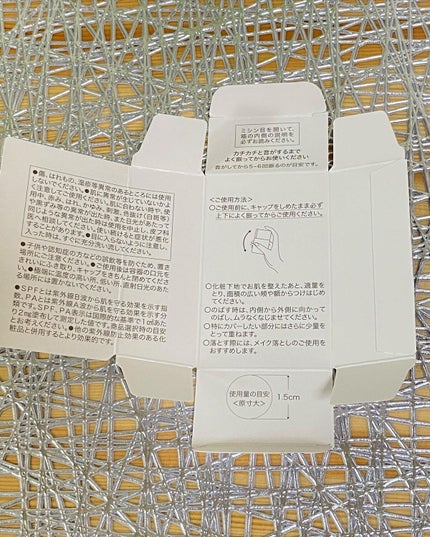 ミシン目を開いて、
箱の内側の説明を
必ずお読みください。
カチカチと音がするまで
よく振ってからお使いください
音がしてから5~6回振るのが目安です。
●傷、はれもの、湿疹等異常のあるところには使用
しないでください。●肌に異常が生じていないかよく
注意してご使用ください。肌に合わない時や、使
用中、赤み、はれ、かゆみ、刺激、色抜け(白斑等)
や黒ずみ等の異常が出た時、また日光があたって
同じような異常が出た時は使用を中止し、皮フ科
医へ相談してください。使い続けると症状が悪化
することがあります。●目に入らないように注意し、
入った時は、すぐに充分洗い流してください。
●子供や認知症の方などの誤飲等を防ぐため、置き
場所にご注意ください。●ご使用後は容器の口元を
きれいにふき取り、キャップをきちんと閉めてください。
●極端に温度の高い所、低い所、直射日光のあた
る場所には置かないでください。
●SPFは紫外線B波から肌を守る効果を示す指
数、PAとは紫外線A波から肌を守る効果を示す分
類です。SPF、PA表示は国際的な基準で1㎠あた
り2㎎塗布して測定した値です。商品選択時の目安
とお考えください。●他の紫外線防止効果のある化
粧品と併用するとより効果的です。
<ご使用方法>
○ご使用前に、キャップをしめたまま必ず
上下によく振ってからご使用ください。
○化粧下地でお肌を整えたあと、適量を
とり、面積の広い頬や額からつけはじめ
てください。
○のばす時は、内側から外側に向かって
のばし、ムラなくなじませてください。
○特にカバーしたい部分にはさらに少量を
とって重ねます。
○落とす際には、メイク落としのご使用を
おすすめします。
使用量の目安
<原寸大>
1.5cm